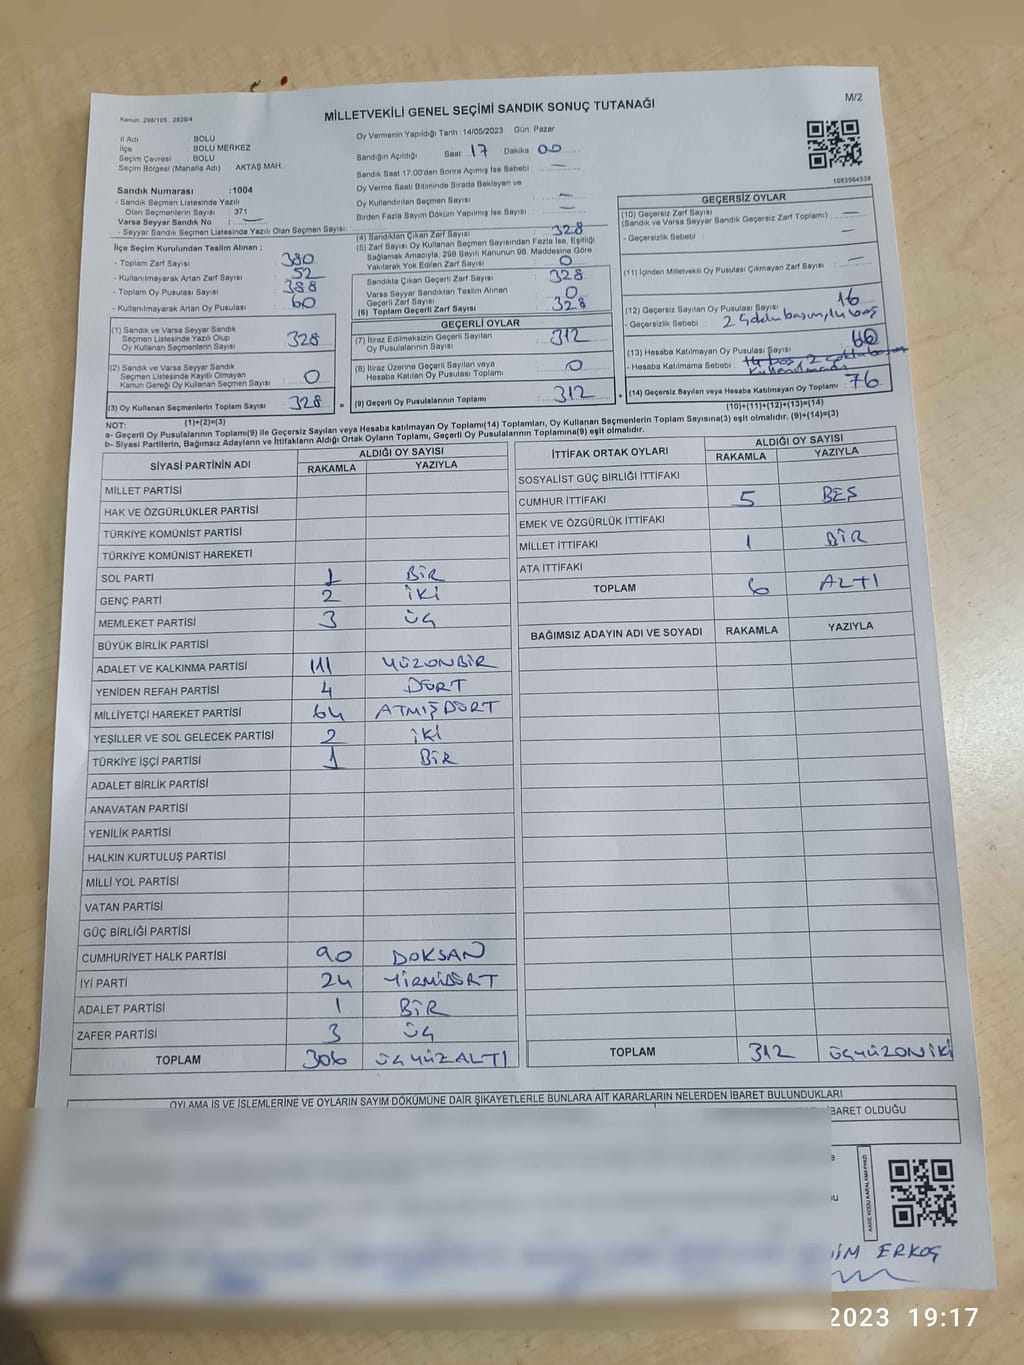 MİLLETVEKİLİ GENEL SEÇİMİ SANDIK SONUÇ TUTANAĞI
M/2
Kanun: 298/105 , 2839/4
İl Adı : BOLU
İlçe : BOLU MERKEZ
Seçim Çevresi : BOLU
Seçim Bölgesi (Mahalle Adı) : AKTAŞ MAH.
Oy Vermenin Yapıldığı Tarih : 14/05/2023 Gün: Pazar
Sandığın Açıldığı Saat: 17 Dakika 00
Sandık Saat 17:00'den Sonra Açımış İse Sebebi : —
Oy Verme Saati Bitiminde Sırada Bekleyen ve
Oy Kullandırılan Seçmen Sayısı : —
Birden Fazla Sayım Döküm Yapılmış İse Sayısı : —
1083564538
Sandık Numarası : 1004
- Sandık Seçmen Listesinde Yazılı
Olan Seçmenlerin Sayısı : 371
Varsa Seyyar Sandık No : —
- Seyyar Sandık Seçmen Listesinde Yazılı Olan Seçmen Sayısı:
İlçe Seçim Kurulundan Teslim Alınan ;
- Toplam Zarf Sayısı : 380
- Kullanılmayarak Artan Zarf Sayısı : 52
- Toplam Oy Pusulası Sayısı : 388
- Kullanılmayarak Artan Oy Pusulası : 60
(1) Sandık ve Varsa Seyyar Sandık
Seçmen Listesinde Yazılı Olup
Oy Kullanan Seçmenlerin Sayısı : 328
(2) Sandık ve Varsa Seyyar Sandık
Seçmen Listesinde Kayıtlı Olmayan
Kanun Gereği Oy Kullanan Seçmen Sayısı : 0
(3) Oy Kullanan Seçmenlerin Toplam Sayısı : 328
(1)+(2)=(3)
(4) Sandıktan Çıkan Zarf Sayısı : 328
(5) Zarf Sayısı Oy Kullanan Seçmen Sayısından Fazla İse, Eşitliği
Sağlamak Amacıyla; 298 Sayılı Kanunun 98. Maddesine Göre
Yakılarak Yok Edilen Zarf Sayısı : 0
Sandıkta Çıkan Geçerli Zarf Sayısı : 328
Varsa Seyyar Sandıktan Teslim Alınan
Geçerli Zarf Sayısı : 0
(6) Toplam Geçerli Zarf Sayısı : 328
GEÇERLİ OYLAR
(7) İtiraz Edilmeksizin Geçerli Sayılan
Oy Pusulalarının Sayısı : 312
(8) İtiraz Üzerine Geçerli Sayılan veya
Hesaba Katılan Oy Pusulası Toplamı : 0
= (9) Geçerli Oy Pusulalarının Toplamı : 312
GEÇERSİZ OYLAR
(10) Geçersiz Zarf Sayısı : —
(Sandık ve Varsa Seyyar Sandık Geçersiz Zarf Toplamı)
- Geçersizlik Sebebi : —
(11) İçinden Milletvekili Oy Pusulası Çıkmayan Zarf Sayısı : —
(12) Geçersiz Sayılan Oy Pusulası Sayısı : 16
- Geçersizlik Sebebi : 2
(13) Hesaba Katılmayan Oy Pusulası Sayısı : 60
- Hesaba Katılmama Sebebi :
+ (14) Geçersiz Sayılan veya Hesaba Katılmayan Oy Toplamı : 76
(10)+(11)+(12)+(13)=(14)
NOT:
a- Geçerli Oy Pusulalarının Toplamı(9) ile Geçersiz Sayılan veya Hesaba katılmayan Oy Toplamı(14) Toplamları, Oy Kullanan Seçmenlerin Toplam Sayısına(3) eşit olmalıdır. (9)+(14)=(3)
b- Siyasi Partilerin, Bağımsız Adayların ve İttifakların Aldığı Ortak Oyların Toplamı, Geçerli Oy Pusulalarının Toplamına(9) eşit olmalıdır.
SİYASİ PARTİNİN ADI ALDIĞI OY SAYISI
RAKAMLA YAZIYLA
MİLLET PARTİSİ
HAK VE ÖZGÜRLÜKLER PARTİSİ
TÜRKİYE KOMÜNİST PARTİSİ
TÜRKİYE KOMÜNİST HAREKETİ
SOL PARTİ 1 BİR
GENÇ PARTİ 2 İKİ
MEMLEKET PARTİSİ 3 ÜÇ
BÜYÜK BİRLİK PARTİSİ
ADALET VE KALKINMA PARTİSİ 111 YÜZONBİR
YENİDEN REFAH PARTİSİ 4 DÖRT
MİLLİYETÇİ HAREKET PARTİSİ 64 ATMIŞDÖRT
YEŞİLLER VE SOL GELECEK PARTİSİ 2 İKİ
TÜRKİYE İŞÇİ PARTİSİ 1 BİR
ADALET BİRLİK PARTİSİ
ANAVATAN PARTİSİ
YENİLİK PARTİSİ
HALKIN KURTULUŞ PARTİSİ
MİLLİ YOL PARTİSİ
VATAN PARTİSİ
GÜÇ BİRLİĞİ PARTİSİ
CUMHURİYET HALK PARTİSİ 90 DOKSAN
İYİ PARTİ 24 YİRMİDÖRT
ADALET PARTİSİ 1 BİR
ZAFER PARTİSİ 3 ÜÇ
TOPLAM 306 ÜÇYÜZALTI
İTTİFAK ORTAK OYLARI ALDIĞI OY SAYISI
RAKAMLA YAZIYLA
SOSYALİST GÜÇ BİRLİĞİ İTTİFAKI
CUMHUR İTTİFAKI 5 BEŞ
EMEK VE ÖZGÜRLÜK İTTİFAKI
MİLLET İTTİFAKI 1 BİR
ATA İTTİFAKI
TOPLAM 6 ALTI
BAĞIMSIZ ADAYIN ADI VE SOYADI RAKAMLA YAZIYLA
TOPLAM 312 ÜÇYÜZONİKİ
OYLAMA İŞ VE İŞLEMLERİNE VE OYLARIN SAYIM DÖKÜMÜNE DAİR ŞİKAYETLERLE BUNLARA AİT KARARLARIN NELERDEN İBARET BULUNDUKLARI
İBARET OLDUĞU
KARE KODU KARALAMAYINIZ!
ERKOÇ
2023 19:17